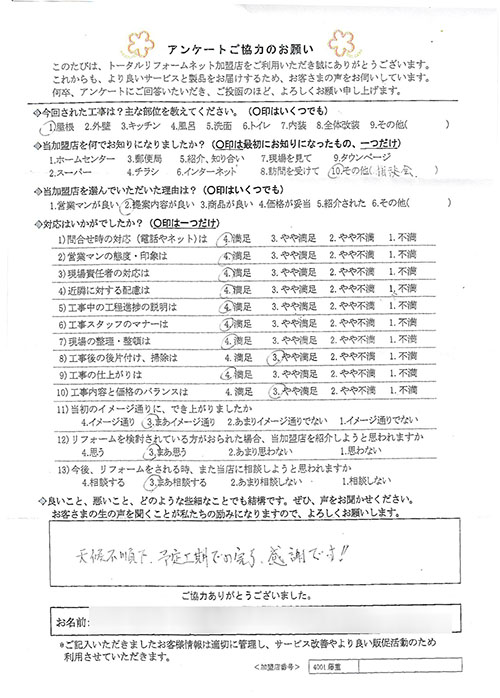 アンケートご協力のお願い
このたびは、トータルリフォームネット加盟店をご利用いただき誠にありがとうございます。
これからも、より良いサービスと製品をお届けするため、お客さまの声をお伺いしています。
何卒、アンケートにご回答いただき、ご投函のほど、よろしくお願い申し上げます。
◇今回された工事は?主な部位を教えてください。（〇印はいくつでも）
1.屋根 2.外壁 3.キッチン 4.風呂 5.洗面 6.トイレ 7.内装 8.全体改装 9.その他( )
◇当加盟店を何でお知りになりましたか?（〇印は最初にお知りになったもの、一つだけ）
1.ホームセンター 3.郵便局 5.紹介、知り合い 7.現場を見て 9.タウンページ
2.スーパー 4.チラシ 6.インターネット 8.訪問を受けて 10.その他(相談会)
◇当加盟店を選んでいただいた理由は?（〇印はいくつでも）
1.営業マンが良い 2.提案内容が良い 3.商品が良い 4.価格が妥当 5.紹介された 6.その他( )
◇対応はいかがでしたか?（〇印は一つだけ）
1)問合せ時の対応（電話やネット)は 4.満足 3.やや満足 2.やや不満 1.不満
2)営業マンの態度・印象は 4.満足 3.やや満足 2.やや不満 1.不満
3)現場責任者の対応は 4.満足 3.やや満足 2.やや不満 1.不満
4)近隣に対する配慮は 4.満足 3.やや満足 2.やや不満 1.不満
5)工事中の工程進捗の説明は 4.満足 3.やや満足 2.やや不満 1.不満
6)工事スタッフのマナーは 4.満足 3.やや満足 2.やや不満 1.不満
7)現場の整理・整頓は 4.満足 3.やや満足 2.やや不満 1.不満
8)工事後の後片付け、掃除は 4.満足 3.やや満足 2.やや不満 1.不満
9)工事の仕上がりは 4.満足 3.やや満足 2.やや不満 1.不満
10)工事内容と価格のバランスは 4.満足 3.やや満足 2.やや不満 1.不満
11)当初のイメージ通りに、でき上がりましたか
4.イメージ通り 3.まあイメージ通り 2.あまりイメージ通りでない 1.イメージ通りでない
12)リフォームを検討されている方がおられた場合、当加盟店を紹介しようと思われますか
4.思う 3.まあ思う 2.あまり思わない 1.思わない
13)今後、リフォームをされる時、また当店に相談しようと思われますか
4.相談する 3.まあ相談する 2.あまり相談しない 1.相談しない
◇良いこと、悪いこと、どのような些細なことでも結構です。ぜひ、声をお聞かせください。
お客さまの生の声を聞くことが私たちの励みになりますので、よろしくお願いします。
天候不順下、予定工期での完了、感謝です!!
ご協力ありがとうございました。
お名前:
*ご記入いただきましたお客様情報は適切に管理し、サービス改善やより良い販促活動のため
利用させていただきます。
＜加盟店番号＞ 4001 藤重